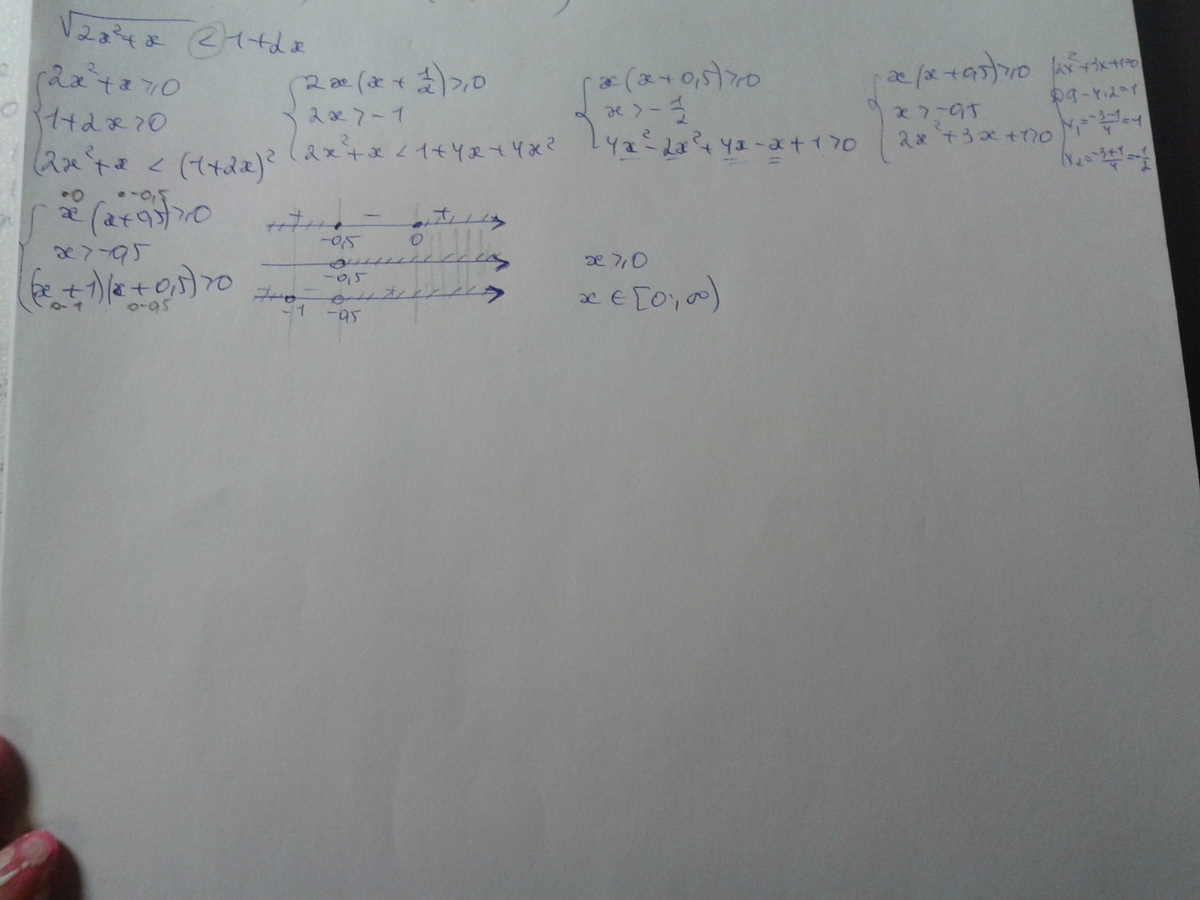 √2x²+x < 1+2x
{ 2x²+x ≥ 0
1+2x > 0
2x²+x < (1+2x)²
{ 2x(x+1/2) ≥ 0
2x > -1
2x²+x < 1+4x+4x²
{ x(x+0,5) ≥ 0
x > -1/2
4x²-2x²+4x-x+1 > 0
{ x(x+0,5) ≥ 0
x > -0,5
2x²+3x+1 > 0
2x²+3x+1=0
D 9-4·2=1
x₁=(-3-1)/4=-1
x₂=(-3+1)/4=-1/2
•0 •-0,5
{ x(x+0,5) ≥ 0
x > -0,5
(x+1)(x+0,5) > 0
o-1 o-0,5
+ - +
-0,5 0
-0,5
+ - +
-1 -0,5
x ≥ 0
x ∈ [0;∞)